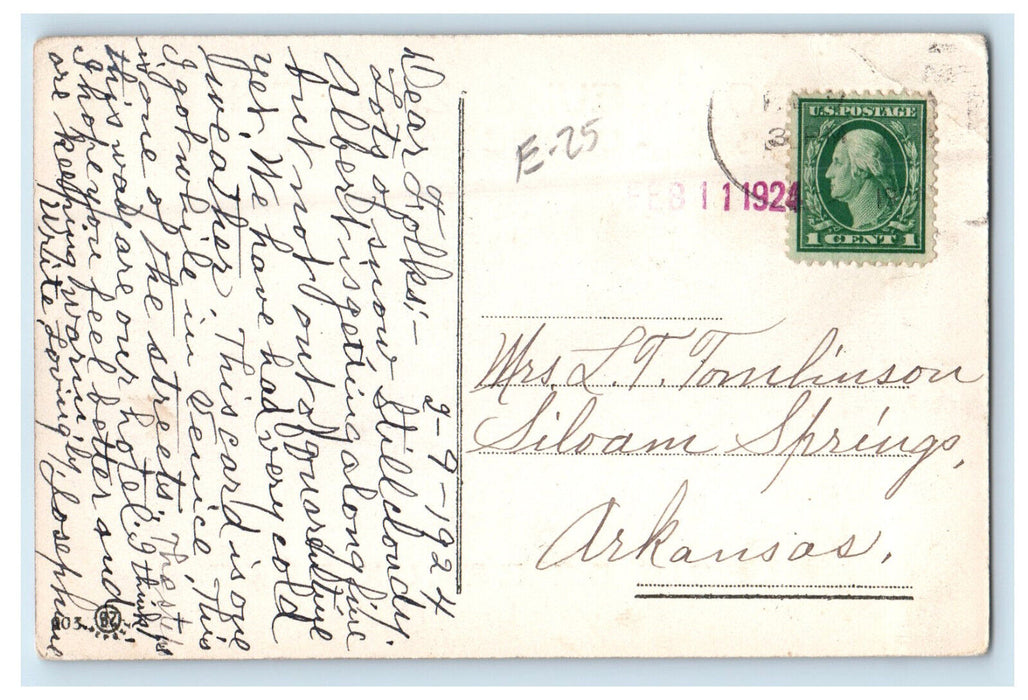 2-9-1924
Dear Folks:-
Lots of snow still cloudy.
Albert is getting along fine
but not out of quarantine
yet. We have had very cold
weather. This card is one
I got while in Venice. This
is one of the streets. That is
this way are our hotel. I think
I hope you feel better and
are keeping warm by
Write, Loving, Josephine
E-25
FEB 11 1924
U.S. POSTAGE
1 CENT 1
Mrs. L. T. Tomlinson
Siloam Springs,
Arkansas.